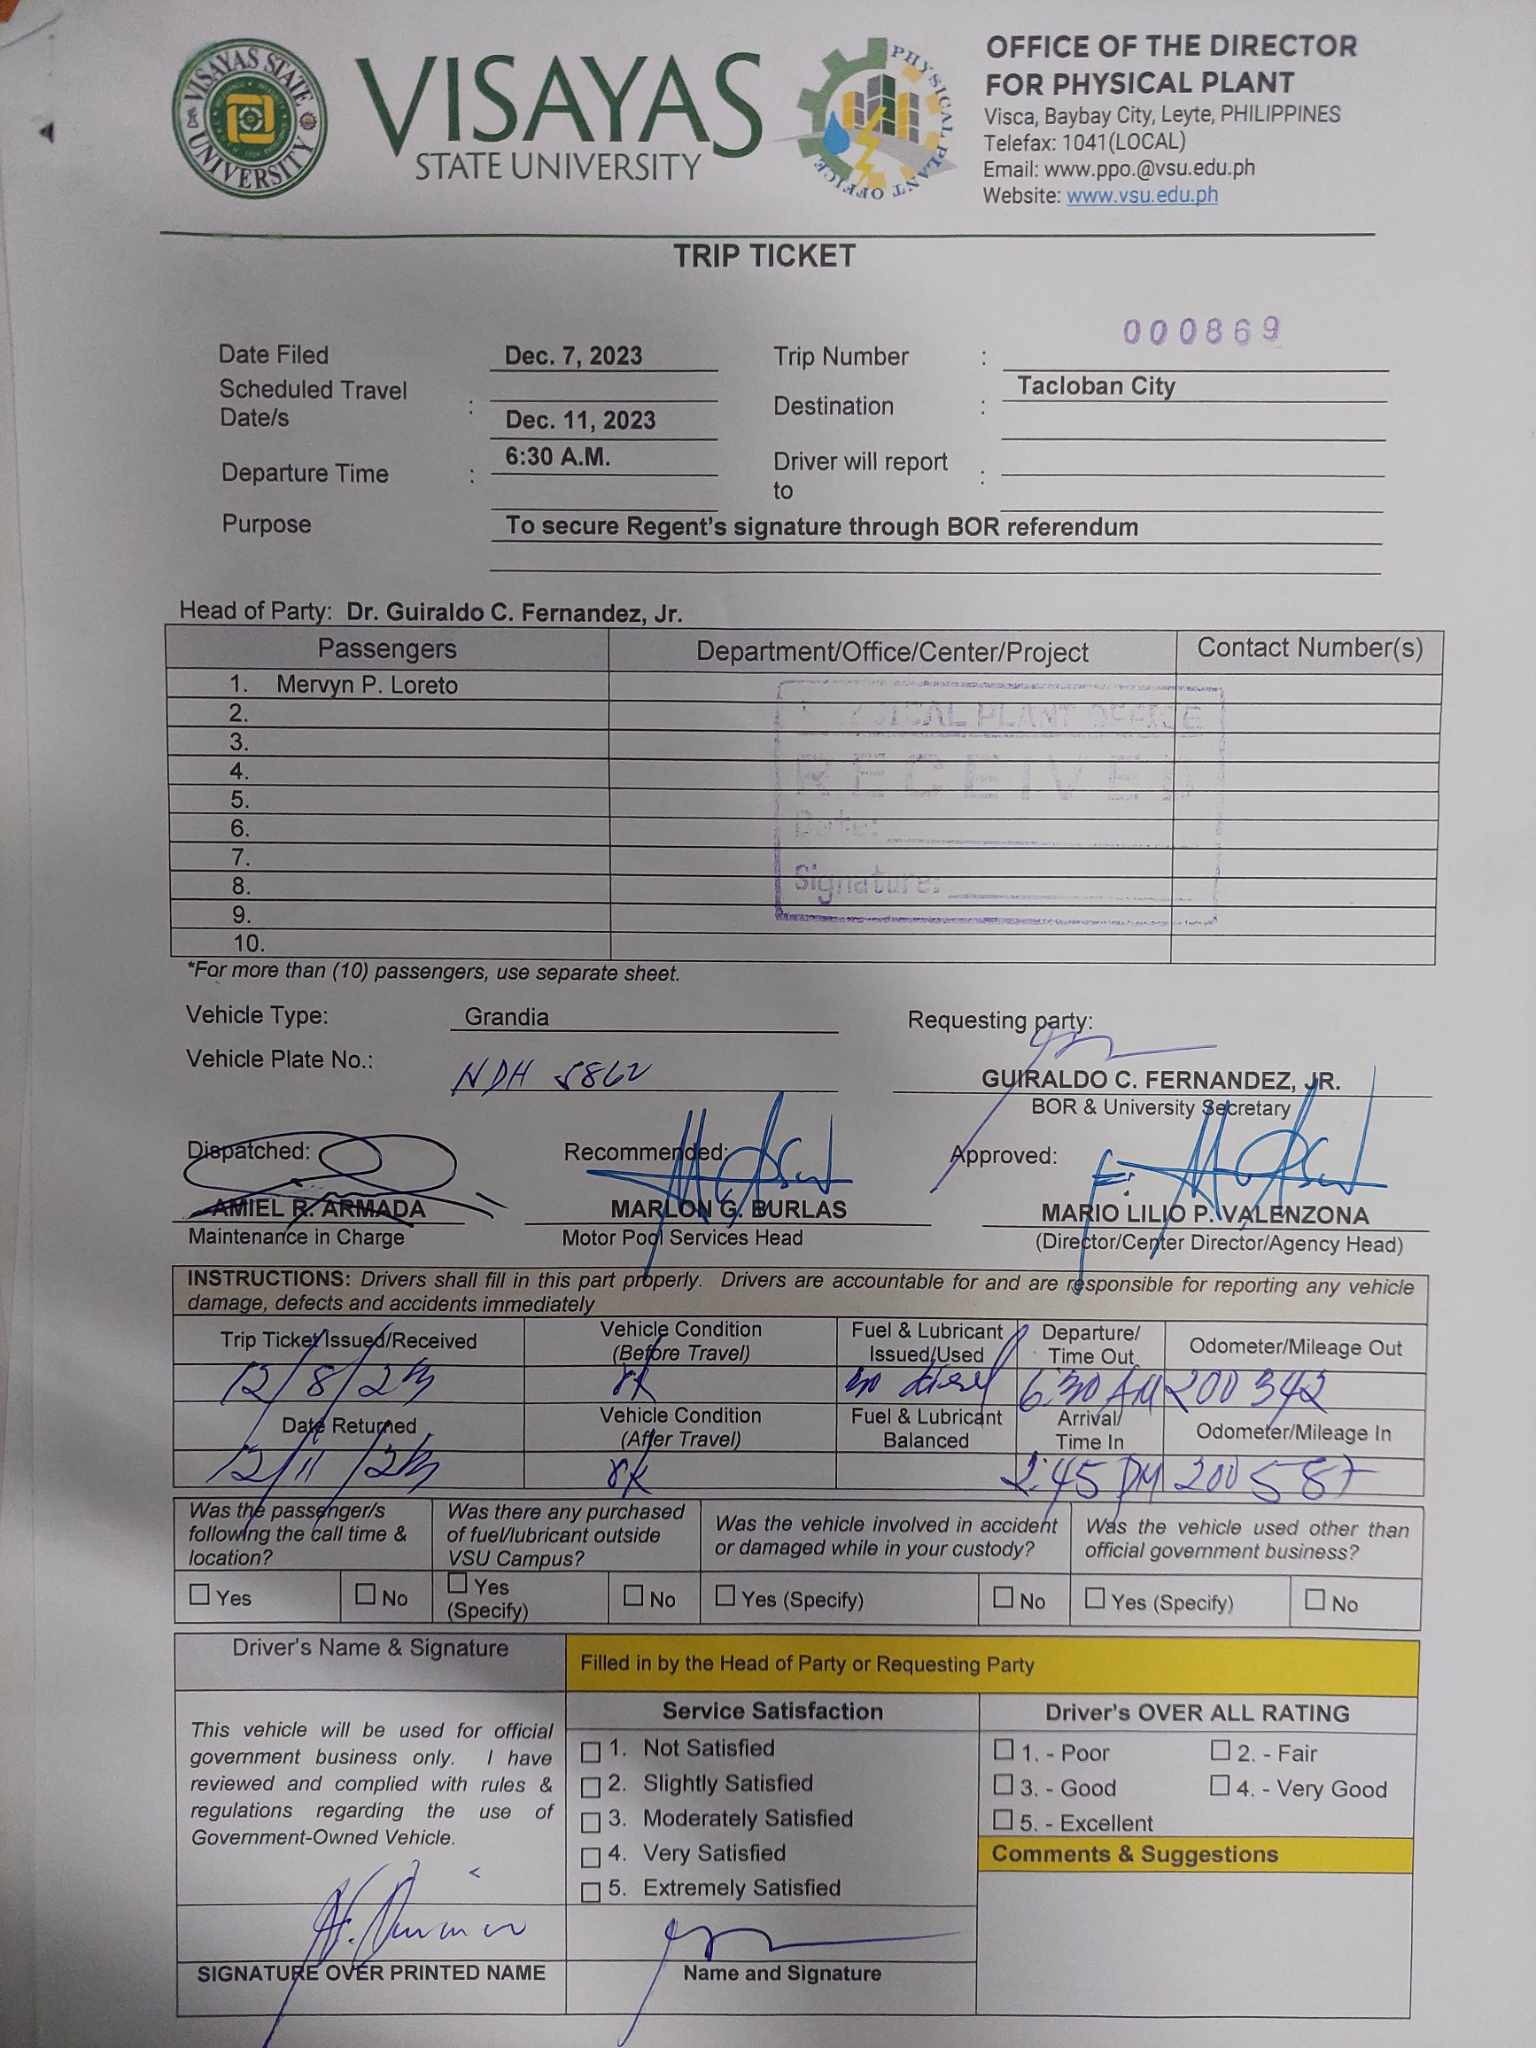 VISAYAS STATE UNIVERSITY
VISAYAS
STATE UNIVERSITY
PHYSICAL PLANT OFFICE
OFFICE OF THE DIRECTOR
FOR PHYSICAL PLANT
Visca, Baybay City, Leyte, PHILIPPINES
Telefax: 1041(LOCAL)
Email: www.ppo.@vsu.edu.ph
Website: www.vsu.edu.ph
TRIP TICKET
Date Filed Dec. 7, 2023 Trip Number : 000869
Scheduled Travel Date/s : Dec. 11, 2023 Destination : Tacloban City
Departure Time : 6:30 A.M. Driver will report to :
Purpose To secure Regent's signature through BOR referendum
Head of Party: Dr. Guiraldo C. Fernandez, Jr.
Passengers Department/Office/Center/Project Contact Number(s)
1. Mervyn P. Loreto
2.
3.
4.
5.
6.
7.
8.
9.
10.
PHYSICAL PLANT OFFICE
RECEIVED
Date:
Signature:
*For more than (10) passengers, use separate sheet.
Vehicle Type: Grandia Requesting party:
Vehicle Plate No.: NDH 5862
GUIRALDO C. FERNANDEZ, JR.
BOR & University Secretary
Dispatched: Recommended: Approved:
AMIEL R. ARMADA MARLON G. BURLAS MARIO LILIO P. VALENZONA
Maintenance in Charge Motor Pool Services Head (Director/Center Director/Agency Head)
INSTRUCTIONS: Drivers shall fill in this part properly. Drivers are accountable for and are responsible for reporting any vehicle
damage, defects and accidents immediately
Trip Ticket Issued/Received Vehicle Condition (Before Travel) Fuel & Lubricant Issued/Used Departure/ Time Out Odometer/Mileage Out
12/8/23 diesel 6:30 AM 200 342
Date Returned Vehicle Condition (After Travel) Fuel & Lubricant Balanced Arrival/ Time In Odometer/Mileage In
12/11/23 2:45 PM 200 587
Was the passenger/s following the call time & location?
Was there any purchased of fuel/lubricant outside VSU Campus?
Was the vehicle involved in accident or damaged while in your custody?
Was the vehicle used other than official government business?
Yes No Yes (Specify) No Yes (Specify) No Yes (Specify) No
Driver's Name & Signature
Filled in by the Head of Party or Requesting Party
This vehicle will be used for official
government business only. I have
reviewed and complied with rules &
regulations regarding the use of
Government-Owned Vehicle.
SIGNATURE OVER PRINTED NAME
Service Satisfaction
1. Not Satisfied
2. Slightly Satisfied
3. Moderately Satisfied
4. Very Satisfied
5. Extremely Satisfied
Name and Signature
Driver's OVER ALL RATING
1. - Poor 2. - Fair
3. - Good 4. - Very Good
5. - Excellent
Comments & Suggestions